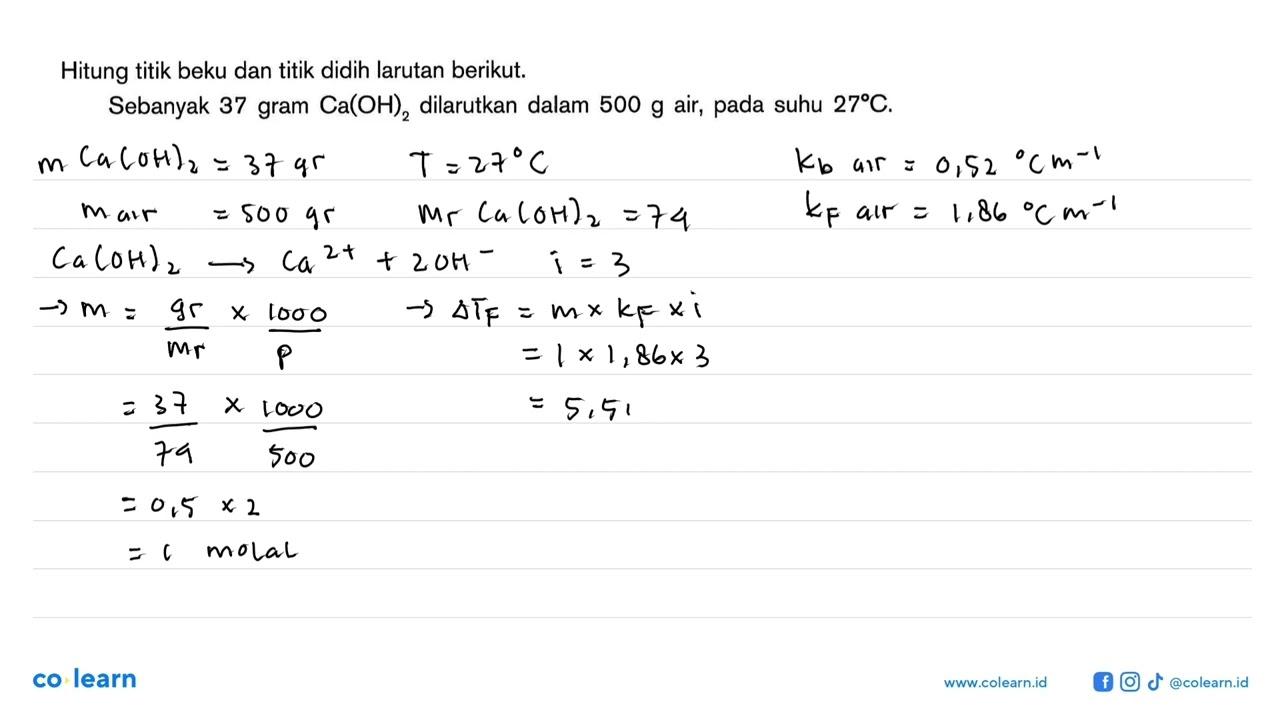 Hitung titik beku dan titik didih larutan berikut.
Sebanyak 37 gram Ca(OH)₂ dilarutkan dalam 500 g air, pada suhu 27°C.
m Ca(OH)₂ = 37 gr T = 27°C kb air = 0,52 °C m⁻¹
m air = 500 gr Mr Ca(OH)₂ = 74 kF air = 1,86 °C m⁻¹
Ca(OH)₂ → Ca²⁺ + 2OH⁻ i = 3
→ m = gr/Mr × 1000/P → ΔTF = m × kF × i
= 1 × 1,86 × 3
= 37/74 × 1000/500 = 5,51
= 0,5 × 2
= 1 molal
co learn
www.colearn.id @colearn.id